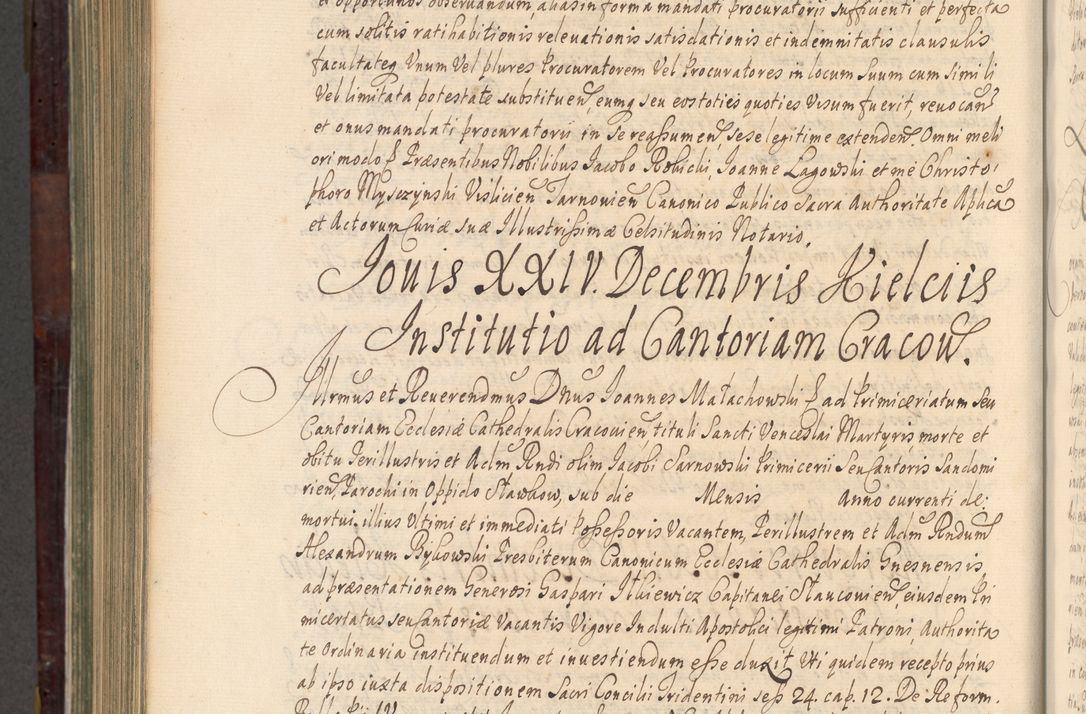 et opportunos observandum, alias in forma mandati procuratorii sufficienti et perfecta
cum solitis ratihabitionis releuationis satisdationis et indemnitatis clausulis
facultateq Unum Vel plures Procuratorem Vel Procuratores in locum Suum cum Simili
Vel limitata potestate substituen, eumq seu eos toties quoties Visum fuerit, reuocan
et onus mandati procuratorii in Se reassumen, sese legitime extenden. Omni meli
ori modo Præsentibus Nobilibus Jacobo Robicki, Joanne Lagowski et me Christo
phoro Mysczynski Visliciens Tarnouien Canonico Publico Sacra Authoritate Aplica
et Actorum Curiæ suæ Illustrissimæ Celsitudinis Notario.
Jouis XXIV. Decembris Kielciis
Institutio ad Cantoriam Cracou.
Illrmus et Reuerendmus Dnus Joannes Małachowski ad Primiceriatum seu
Cantoriam Ecclesiæ Cathedralis Cracouien tituli Sancti Venceslai Martyris morte et
obitu Perillustris et Adm Rndi olim Jacobi Sarnowski Primicerii Seu Cantoris Sandomi
rien, Parochi in Oppido Sławkow, sub die Mensis Anno currenti de:
mortui illius Ultimi et immediati Possessoris Vacantem, Perillustrem et Adm Rndum
Alexandrum Bykowski Presbiterum Canonicum Ecclesiæ Cathedralis Gnesnensis
ad præsentationem Generosi Gaspari Itkiewicz Capitanei Slaucouien, eiusdem Pri
miceriatus seu Cantoriæ Vacantis Vigore Indulti Apostolici legitimi Patroni Authorita
te Ordinaria instituendum et inuestiendum esse duxit, Uti quidem recepto prius
ab ipso iuxta dispositionem Sacri Concilii Tridentini sess 24. cap. 12. De Reform.